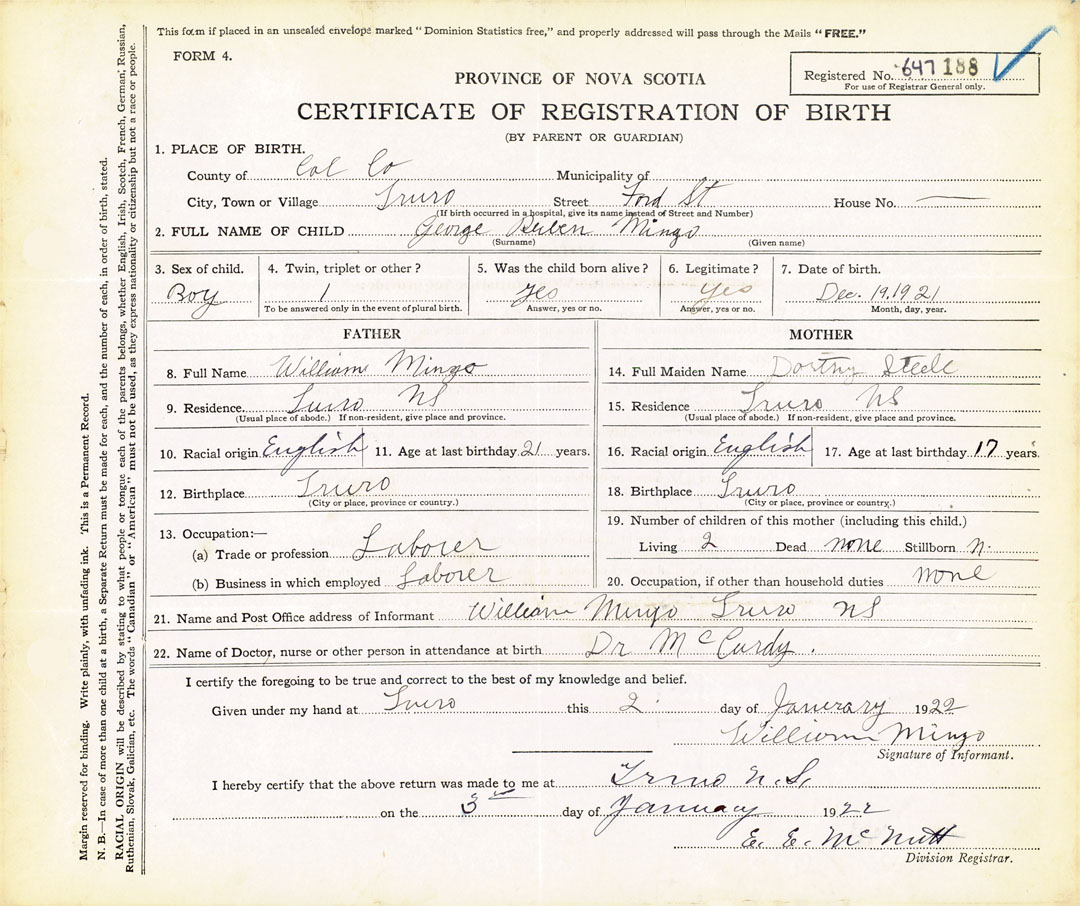 This form if placed in an unsealed envelope marked "Dominion Statistics free," and properly addressed will pass through the Mails "FREE."
FORM 4.
Registered No. 647 188
For use of Registrar General only.
PROVINCE OF NOVA SCOTIA
CERTIFICATE OF REGISTRATION OF BIRTH
(BY PARENT OR GUARDIAN)
1. PLACE OF BIRTH.
County of Col Co Municipality of
City, Town or Village Truro Street Ford St House No. —
(If birth occurred in a hospital, give its name instead of Street and Number)
2. FULL NAME OF CHILD George Reuben Mingo
(Surname) (Given name)
3. Sex of child. 4. Twin, triplet or other? 5. Was the child born alive? 6. Legitimate? 7. Date of birth.
Boy 1 yes yes Dec. 19. 1921
To be answered only in the event of plural birth. Answer, yes or no. Answer, yes or no. Month, day, year.
FATHER MOTHER
8. Full Name William Mingo 14. Full Maiden Name Steele
9. Residence. Truro NS 15. Residence Truro NS
(Usual place of abode.) If non-resident, give place and province. (Usual place of abode.) If non-resident, give place and province.
10. Racial origin English 11. Age at last birthday 21 years. 16. Racial origin English 17. Age at last birthday 17 years.
12. Birthplace Truro 18. Birthplace Truro
(City or place, province or country.) (City or place, province or country.)
13. Occupation:— 19. Number of children of this mother (including this child.)
(a) Trade or profession Laborer Living 2 Dead none Stillborn n.
(b) Business in which employed Laborer 20. Occupation, if other than household duties none
21. Name and Post Office address of Informant William Mingo Truro NS
22. Name of Doctor, nurse or other person in attendance at birth Dr McCurdy.
I certify the foregoing to be true and correct to the best of my knowledge and belief.
Given under my hand at Truro this 2 day of January 1922
William Mingo
Signature of Informant.
I hereby certify that the above return was made to me at Truro N.S.
on the 3rd day of January 1922
E. E. McNutt
Division Registrar.
Margin reserved for binding. Write plainly, with unfading ink. This is a Permanent Record.
N. B.—In case of more than one child at a birth, a Separate Return must be made for each, and the number of each, in order of birth, stated.
RACIAL ORIGIN will be described by stating to what people or tongue each of the parents belongs, whether English, Irish, Scotch, French, German, Russian,
Ruthenian, Slovak, Galician, etc. The words "Canadian" or "American" must not be used, as they express nationality or citizenship but not a race or people.